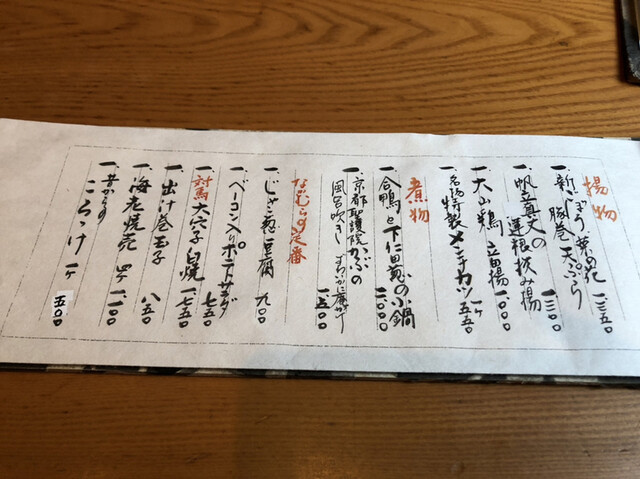 揚物
一、新ごぼう 菜の花
豚巻 天ぷら
一三五〇
一、帆立真丈の
蓮根挟み揚
一三〇〇
一、大山鶏 立田揚
一、〇〇〇
一、名物特製メンチカツ
一ヶ 五五〇
煮物
一、合鴨と下仁田葱の小鍋
二〇〇〇
一、京都聖護院かぶの
風呂吹き
一三〇〇
定番
一、じゃこ葱豆腐 九〇〇
一、ベーコン入りポテトサラダ 七五〇
一、対馬大穴子白焼 一、七五〇
一、出汁巻玉子 八五〇
一、海老焼売 四ケ 一、〇〇
一、昔からの
ころっけ 一ヶ
五〇〇